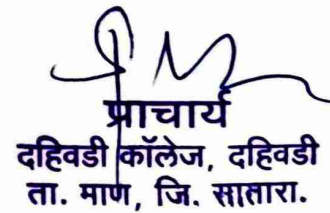 प्राचार्य
दहिवडी कॉलेज, दहिवडी
ता. माण, जि. सातारा.